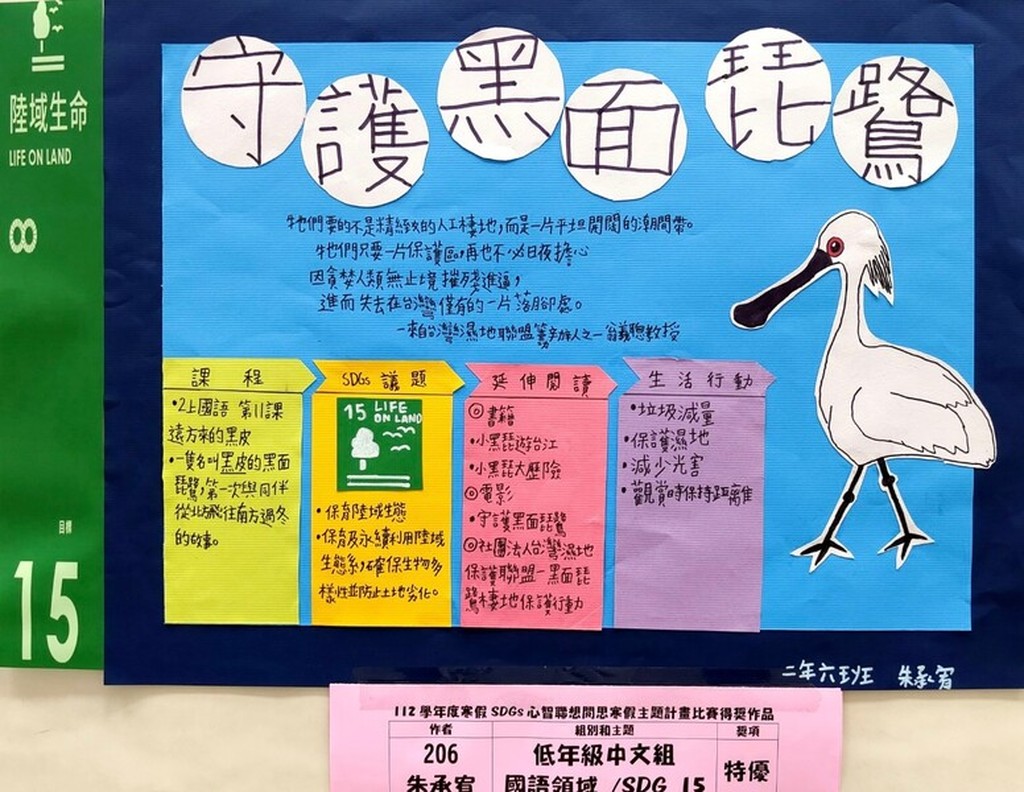 陸域生命
LIFE ON LAND
8
目標
15
守護黑面琵鷺
牠們要的不是精緻的人工棲地,而是一片平坦開闊的潮間帶。
牠們只要一片保護區,再也不必日夜擔心
因貪婪人類無止境摧殘進逼,
進而失去在台灣僅有的一片落腳處。
—來自台灣濕地聯盟籌辦人之一翁義聰教授
課程
•2上國語 第11課
遠方來的黑皮
•一隻名叫黑皮的黑面
琵鷺,第一次與同伴
從北方飛往南方過冬
的故事。
SDGs 議題
15 LIFE
ON LAND
•保育陸域生態
•保育及永續利用陸域
生態系,確保生物多
樣性並防止土地劣化。
延伸閱讀
◎書籍
•小黑琵遊台江
•小黑琵大歷險
◎電影
•守護黑面琵鷺
◎社團法人台灣濕地
保護聯盟-黑面琵
鷺棲地保護行動
生活行動
•垃圾減量
•保護濕地
•減少光害
•觀賞時保持距離
二年六班 朱承宥
112學年度寒假SDGs心智聯想問思寒假主題計畫比賽得獎作品
作者 組別和主題 獎項
206 低年級中文組 特優
朱承宥 國語領域 /SDG 15